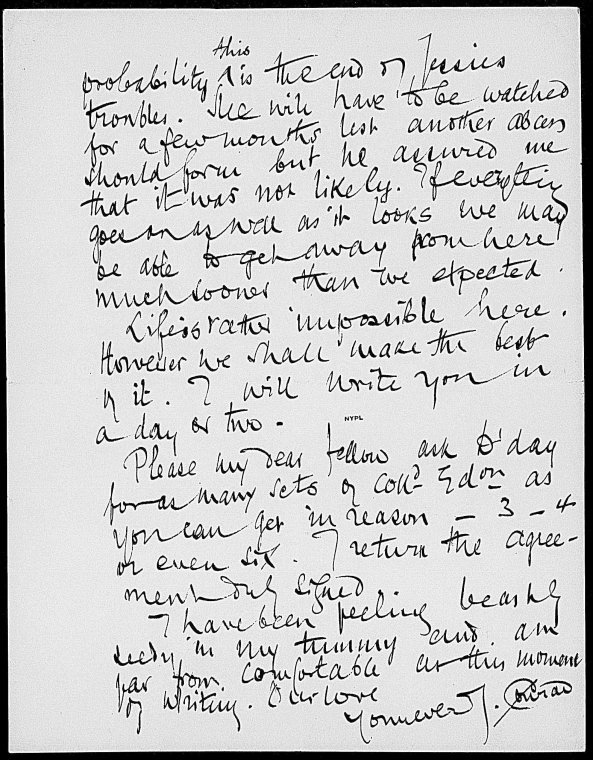 this
probability is the end of Jessies
troubles. She will have to be watched
for a few months lest another abcess
should form but he assured me
that it was not likely. If everything
goes on as well as it looks we may
be able to get away from here
much sooner than we expected.
Life is rather impossible here.
However we shall make the best
of it. I will write you in
a day or two -
NYPL
Please my dear fellow ask D'day
for as many sets of Coll<sup>d</sup> Ed<sup>on</sup> as
you can get in reason - 3 - 4
or even six. I return the agree-
ment duly signed
I have been feeling beastly
seedy in my tummy and am
far from comfortable at this moment
of writing. Our love
Yours ever J. Conrad